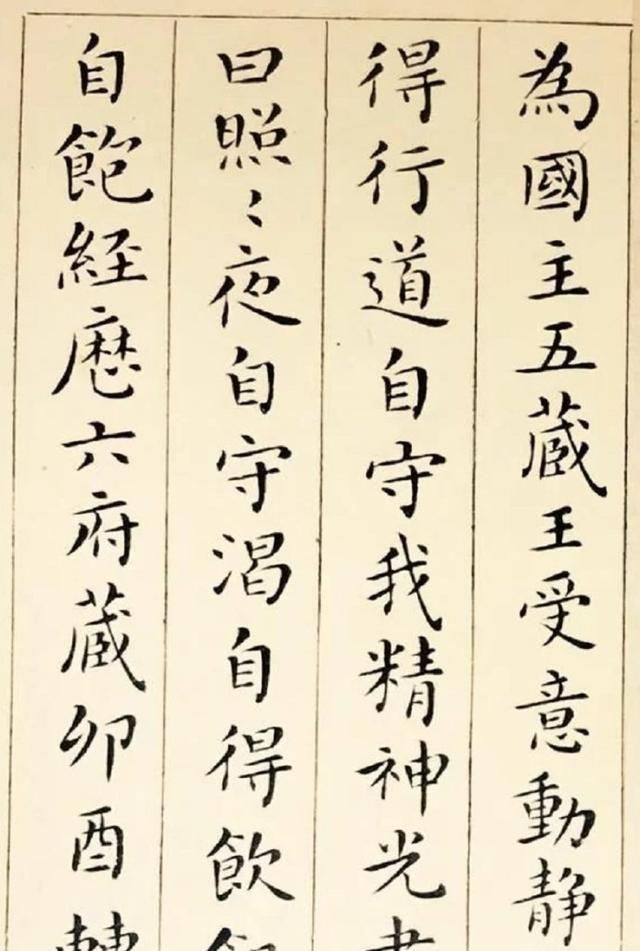 為國主五蔵王受意動静
得行道自守我精神光
日照〻夜自守渴自得飲
自飽経歴六府蔵卯酉